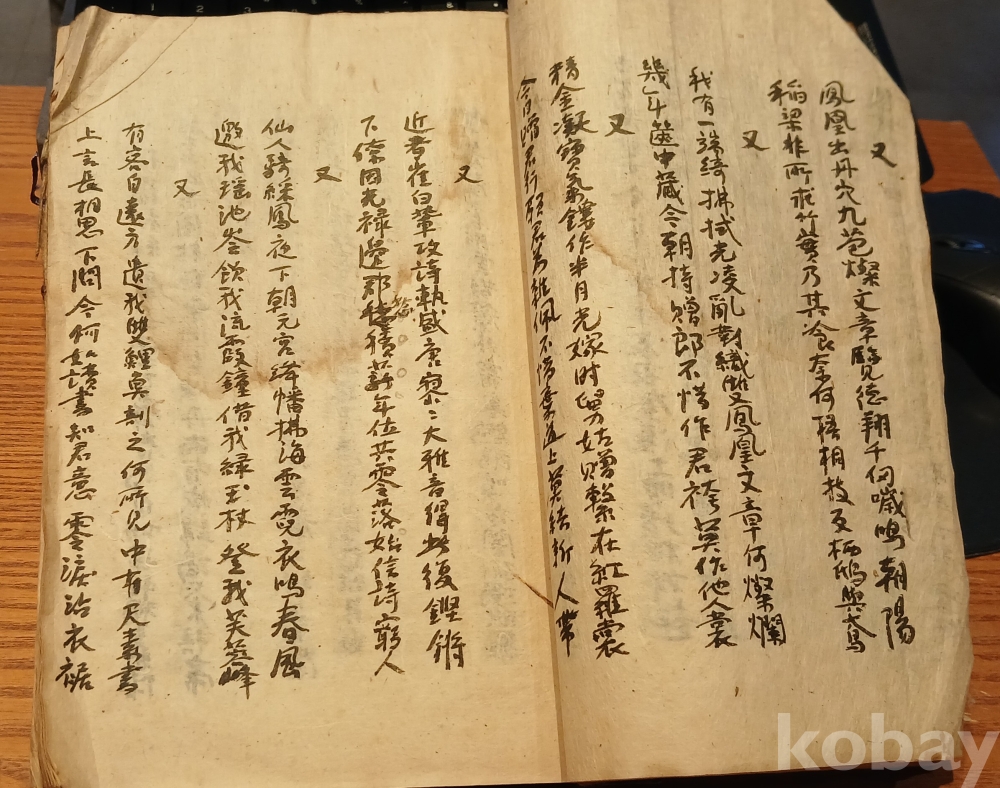 又
鳳凰出丹穴九苞燦文章覽德翔千仞噦鳴朝陽
稻梁非所求竹實乃其飡奈何梧桐枝反栖鴟與鳶
又
我有一端綺拂拭光凌亂對織雙鳳凰文章何燦爛
幾年篋中藏今朝持贈郎不惜作君袴莫作他人裳
又
精金凝寶氣鏤作半月光嫁時舅姑贈繫在紅羅裳
今日贈君行願君爲雜佩不惜棄道上莫結新人帶
又
近者崔白輩攻詩軌盛唐寥〻大雅音得此復鏗鏘
下僚困光禄邊郡愁積薪年位共零落始信詩窮人
又
仙人騎綵鳳夜下朝元宮絳幡拂海雲霓衣鳴春風
邀我瑤池岑飲我流霞鐘借我緑玉杖登我芙蓉峰
又
有客自遠方遺我雙鯉魚剖之何所見中有尺素書
上言長相思下問今何如讀書知君意零淚沾衣裾
kobay